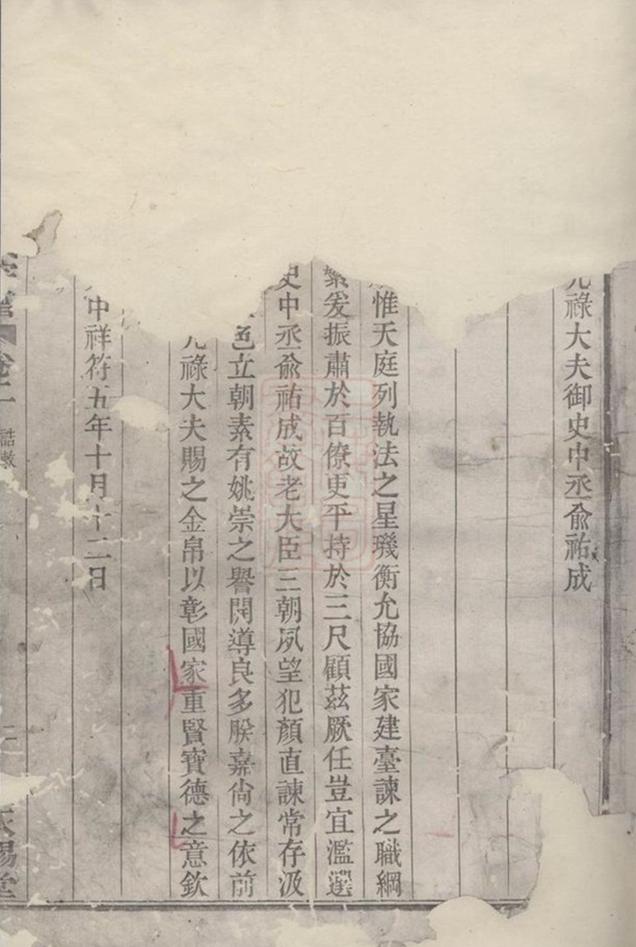 祿大夫御史中丞俞祐成
惟天庭列執法之星璣衡允協國家建臺諫之職綱
爰振肅於百僚更平持於三尺顧茲厥任豈宜濫選
史中丞俞祐成故老大臣三朝夙望犯顏直諫常存汲
色立朝素有姚崇之譽開導良多朕嘉尚之依前
祿大夫賜之金帛以彰國家重賢寶德之意欽
中祥符五年十月十二日
誥敕
賜堂